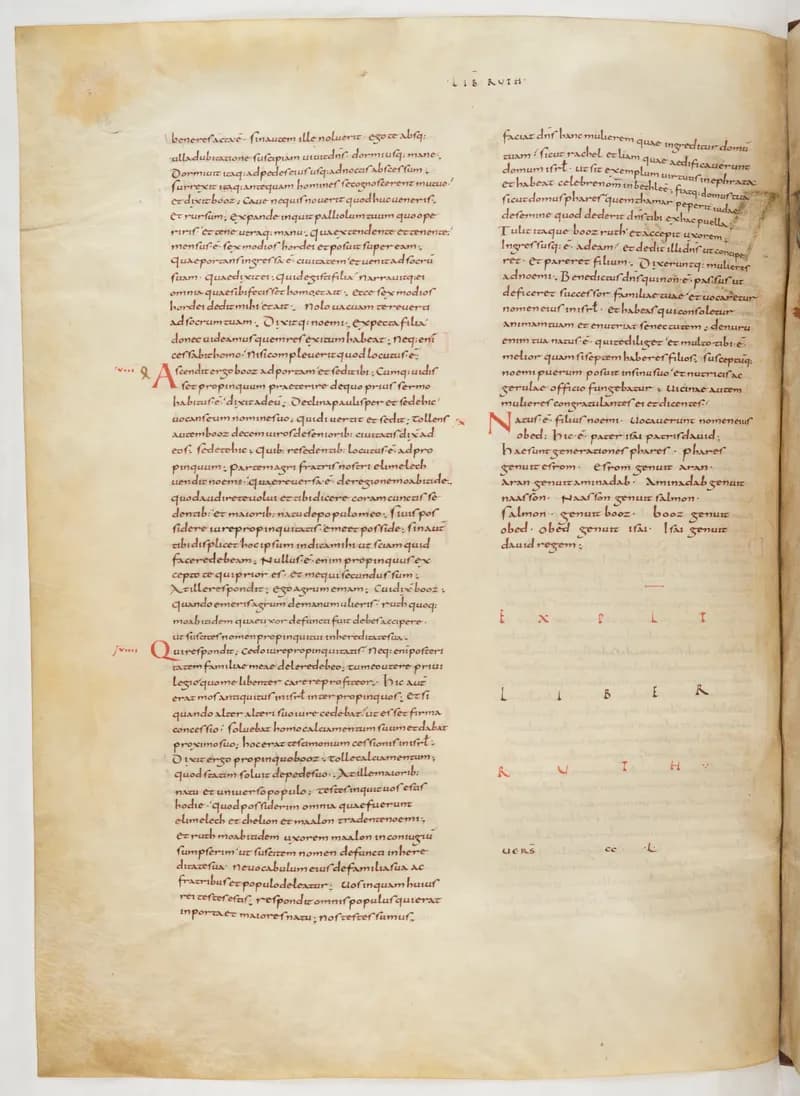 LIB RUTH
bene res acta ē· sin autem ille noluerit· ego te absq:
ulla dubitatione suscipiam uiuit dn̄s· dormi usq: mane·,
Dormiuit itaq: ad pedes eius usq: ad noctis abscessum·,
surrexit itaq: antequam homines se cognoscerent mutuo·
et dixit booz; Caue nequis nouerit quod huc ueneris·,
et rursum; expande inquit palliolum tuum quo ope
riris et tene utraq: manu·, qua extendente et tenente·
mensus ē sex modios hordei et posuit super eam·,
quae portans ingressa ē ciuitatem et uenit ad socrū
suam· quae dixit ei·, quid egisti filia narrauitq: ei
omnia quae sibi fecisset homo et ait·, ecce sex modios
hordei dedit mihi et ait·, Nolo uacuam te reuerti
ad socrum tuam·, Dixitq: noemi·, expecta filia
donec uideamus quem res exitum habeat; Neq: eni
cessabit homo· nisi compleuerit quod locutus ē·
Ascendit ergo booz ad portam et sedit ibi; Cumq: uidis
set propinquum praeterire de quo prius sermo
habitus ē· dixit ad eū; Declina paulisper et sede hic
uocans eum nomine suo·, qui diuertit et sedit; tollens
autem booz decem uiros de seniorib: ciuitatis dix̄ ad
eos·, sedete hic·, quib: residentib: locutus ē ad pro
pinquum·, partem agri fratris nostri elimelech
uendit noemi· quae reuersa ē· de regione moabitide·,
quod audire te uolui et tibi dicere coram cunctis se
dentib: et maiorib: natu de populo meo·, si uis pos
sidere iure propinquitatis· eme et posside; sin aūt
tibi displicet hoc ipsum indica mihi ut sciam quid
facere debeam; Nullus ē enim propinquus ex
cepto te qui prior es· et me qui secundus sum;
At ille respondit; ego agrum emam; Cui dix̄ booz;
quando emeris agrum de manu mulieris· ruth quoq:
moabitidem quae uxor defuncti fuit debes accipere·
ut suscites nomen propinqui tui in hereditate sua·,
xuiiii
Qui respondit; cedo iure propinquitatis· Neq: eni posteri
tatem familiae meae delere debeo; tu meo utere priui
legio quo me libenter carere profiteor·, hic aut̄
erat mos antiquitus in isrl̄ inter propinquos; et si
quando alter alteri suo iure cedebat· ut esset firma
concessio· soluebat homo calciamentum suum et dabat
proximo suo; hoc erat testimonium cessionis in isrl̄·,
Dixit ergo propinquo booz·, tolle calciamentum;
quod statim soluit de pede suo·, At ille maiorib:
natu et uniuerso populo; testes inquit uos estis
hodie· quod possiderim omnia quae fuerunt
elimelech et chelion et maalon tradente noemi·,
et ruth moabitidem uxorem maalon in coniugiū
sumpserim· ut suscitem nomen defuncti in here
ditate sua· ne uocabulum eius de familia sua ac
fratribus et populo deleatur; Uos inquam huius
rei testes estis·, respondit omnis populus qui erat
in porta et maiores natu; nos testes sumus·,
faciat dn̄s hanc mulierem quae ingreditur domū
tuam· sicut rachel et liam quae aedificauerunt
domum isrl̄· ut sit exemplum uirtutis in ephrata
et habeat celebre nomen in bethleē·, fiatq: domus tua
sicut domus phares quem thamar peperit iudae
de semine quod dederit dn̄s tibi ex hac puella·,
Tulit itaque booz ruth et accepit uxorem·,
Ingressusq: ē ad eam· et dedit illi dn̄s ut concipe
ret· et pareret filium·, Dixeruntq: mulieres
ad noemi·, Benedictus dn̄s qui non ē passus ut
deficeret successor familiae tuae et uocaretur
nomen eius in isrl̄· et habeas qui consoletur
animam tuam et enutriat senectutem; de nuru
enim tua natus ē· qui te diliget et multo tibi ē
melior quam si septem haberes filios; susceptūq:
noemi puerum posuit in sinu suo et nutricis ac
gerulae officio fungebatur; Uicinae autem
mulieres congratulantes ei et dicentes·
Natus ē filius noemi· Uocauerunt nomen eius
obed; hic ē pater isai patris dauid;
Hae sunt generationes phares· phares
genuit esrom· esrom genuit aran·
Aran genuit aminadab· Aminadab genuit
naasson· Naasson genuit salmon·
Salmon· genuit booz· booz genuit
obed· obed genuit isai· Isai genuit
dauid regem;
EXPLIT
LIBER
RUTH
UERS̄ cc·L·